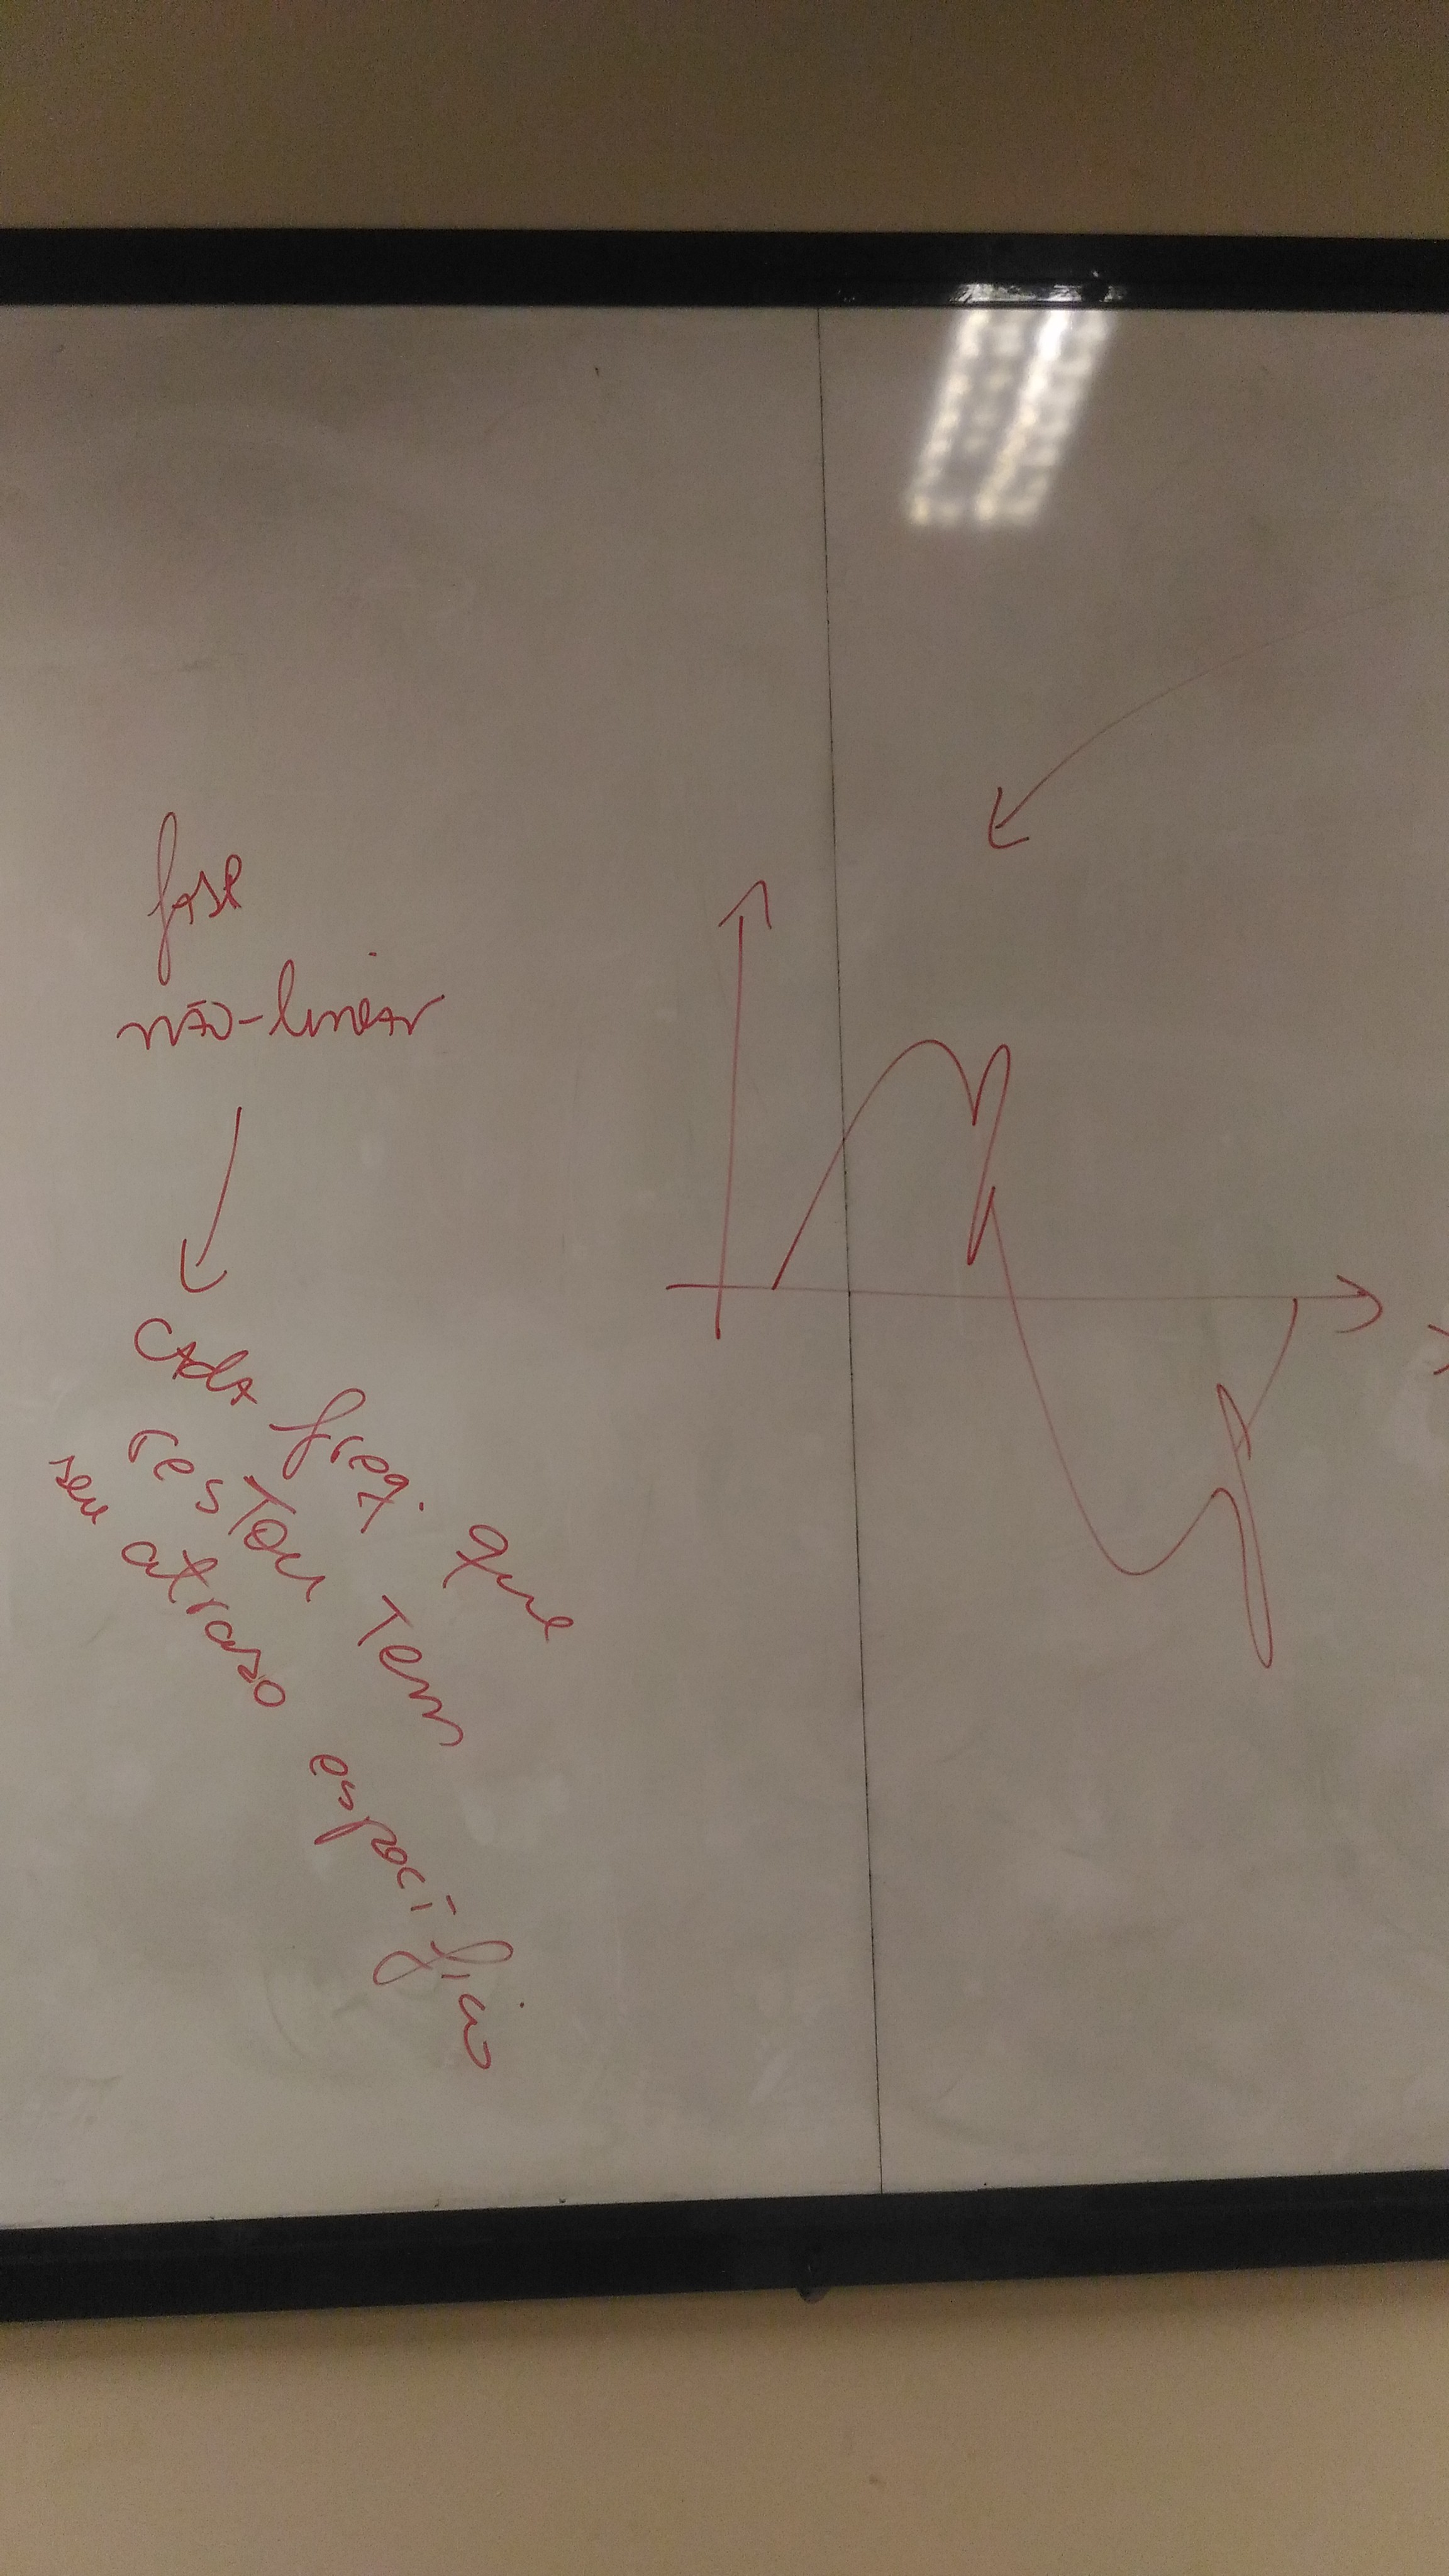 fase
não-linear
cada freq. que
restou tem
seu atraso específico